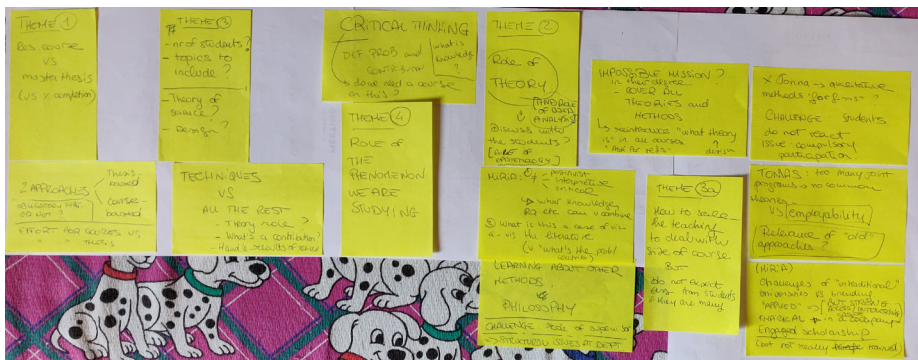 THEME 1
Res. course
VS
master thesis
(VS % completion)
THEME 3
- nr of students?
- topics to
include?
- Theory of
science?
- Design?
CRITICAL THINKING
DEF PROB and
CONTRIBUTION
what is
knowledge
?
↳ do we need a course
on this?
THEME 2
Role of
THEORY
[AND ROLE
OF DATA
ANALYSIS]
Discuss with
the students?
[ROLE OF
EPISTEMOLOGY]
IMPOSSIBLE MISSION?
in their degree
- COVER ALL
THEORIES and
METHODS
↳ reintroduce "what theory
is" in all courses
"Ask for refs" ?
x Jonna →
methods for firms" ?
CHALLENGE students
do not react
ISSUE: compulsory
participation
THEME 4
ROLE OF
THE
PHENOMENON
WE ARE
STUDYING
2 APPROACHES
Thesis-
bound
course-
bound
OR NOT?
EFFORT FOR COURSES VS
" " THESIS
TECHNIQUES
VS
ALL THE REST
- Theory role?
- What's a contribution?
MiRiA:
- positivist
- interpretive
- critical
↳ what knowledge,
RQ etc. can u combine
What is this a case of vis
-a-vis the literature
(↓ "what's the prob/
LEARNING ABOUT OTHER
METHODS
PHILOSOPHY
CHALLENGE role of supervisor
→ STRUCTURAL ISSUES AT DEPT
THEME 3a
How to scale
the teaching
to deal with
size of course
BUT
do not expect
from students
if they are many
TOMAS: too many joint
programs → no common
VS employability
Relevance of "old"
approaches?
(MiRiA)
Challenges of "traditional"
universities VS
"APPLIED" →
Engaged scholarship
(but not really trained)